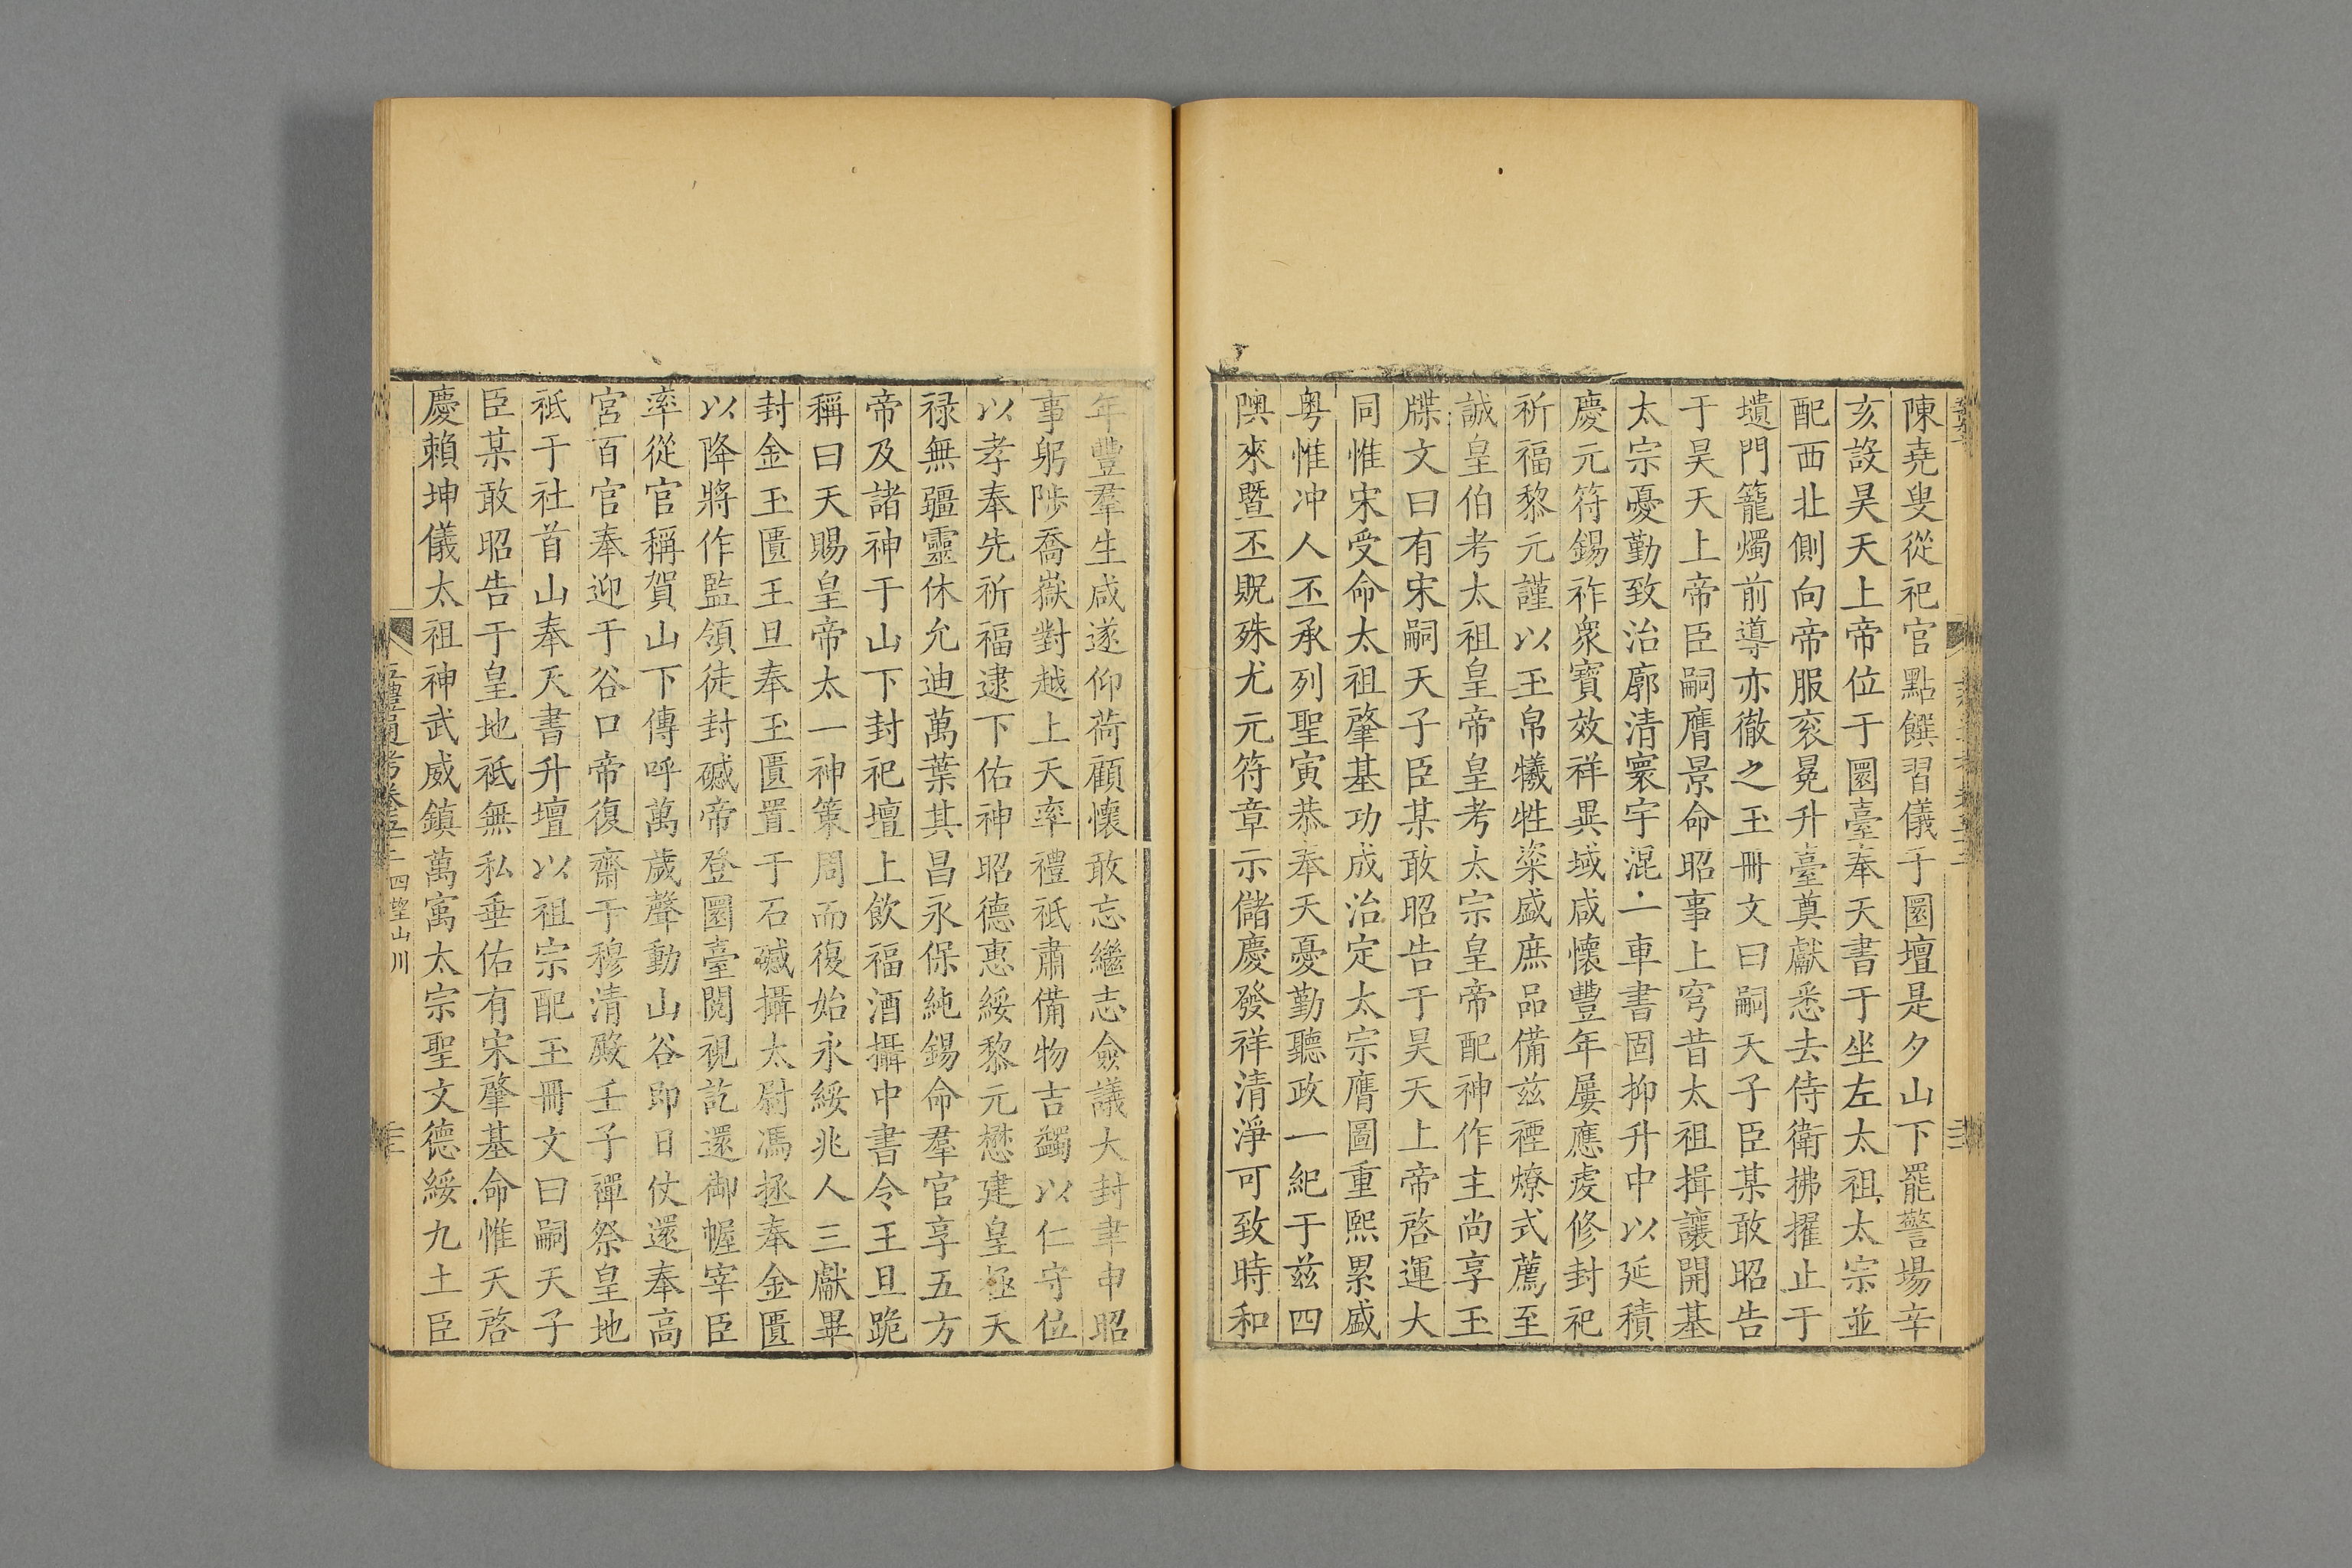 陳堯叟從祀官點饌習儀于圜壇是夕山下罷警場辛
亥設昊天上帝位于圜臺奉天書于坐左太祖太宗並
配西北側向帝服衮冕升臺奠獻悉去侍衛拂擢止于
壝門籠燭前導亦徹之玉冊文曰嗣天子臣某敢昭告
于昊天上帝臣嗣膺景命昭事上穹昔太祖揖讓開基
太宗憂勤致治廓清寰宇混一車書固抑升中以延積
慶元符錫祚衆寶效祥異域咸懷豐年屢應虔修封祀
祈福黎元謹以玉帛犧牲粢盛庶品備兹禋燎式薦至
誠皇伯考太祖皇帝皇考太宗皇帝配神作主尚享玉
牒文曰有宋嗣天子臣某敢昭告于昊天上帝啓運大
同惟宋受命太祖肇基功成治定太宗膺圖重熙累盛
粤惟冲人丕承列聖寅恭奉天憂勤聽政一紀于兹四
隩來暨丕貺殊尤元符章示儲慶發祥清淨可致時和
年豐羣生咸遂仰荷顧懷敢忘繼志僉議大封聿申昭
事躬陟喬嶽對越上天率禮祗肅備物吉蠲以仁守位
以孝奉先祈福逮下佑神昭德惠綏黎元懋建皇極天
禄無疆靈休允迪萬葉其昌永保純錫命羣官享五方
帝及諸神于山下封祀壇上飲福酒攝中書令王旦跪
稱曰天賜皇帝太一神策周而復始永綏兆人三獻畢
封金玉匱王旦奉玉匱置于石䃭攝太尉馮拯奉金匱
以降將作監領徒封䃭帝登圜臺閱視訖還御幄宰臣
率從官稱賀山下傳呼萬歲聲動山谷即日仗還奉高
宮百官奉迎于谷口帝復齋于穆清殿壬子禪祭皇地
祇于社首山奉天書升壇以祖宗配玉冊文曰嗣天子
臣某敢昭告于皇地祇無私垂佑有宋肇基命惟天啓
慶賴坤儀太祖神武威鎮萬寓太宗聖文德綏九土臣
五禮通考卷五十一四望山川